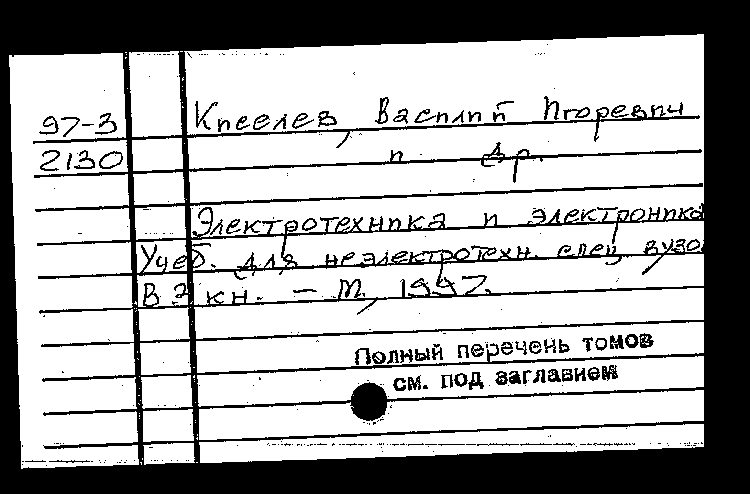 97-3 Киселев, Василий Игоревич
2130 и др.
Электротехника и электроника
Учеб. для неэлектротехн. спец вузо
В 3 кн. – М, 1997.
Полный перечень томов
см. под заглавием